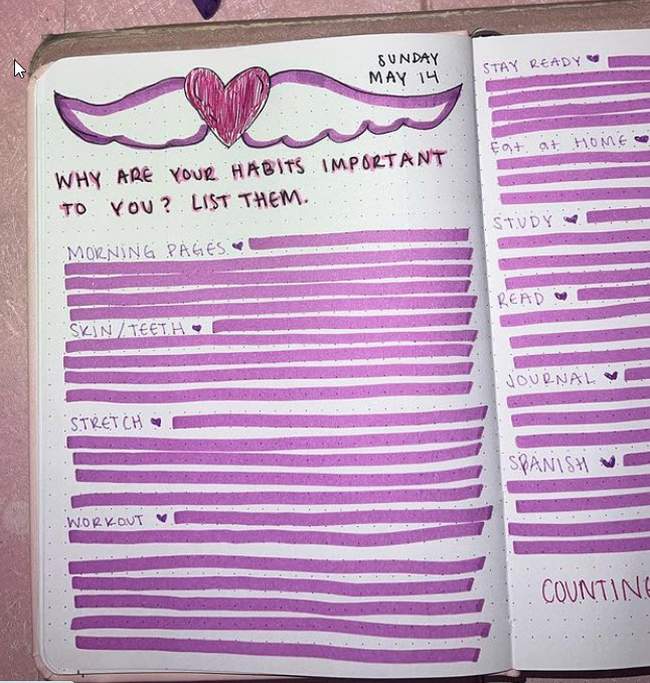 SUNDAY
MAY 14
WHY ARE YOUR HABITS IMPORTANT
TO YOU? LIST THEM.
MORNING PAGES
SKIN/TEETH
STRETCH
WORKOUT
STAY READY
Eat at HOME
STUDY
READ
JOURNAL
SPANISH
COUNTING